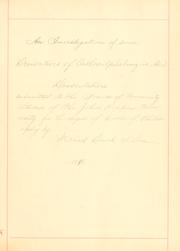 An Investigation of some
Derivatives of Orthosulphobenzoic Acid
Dissertation
submitted to the Board of University
Studies of the Johns Hopkins Univer
sity for the degree of Doctor of Philos
ophy by